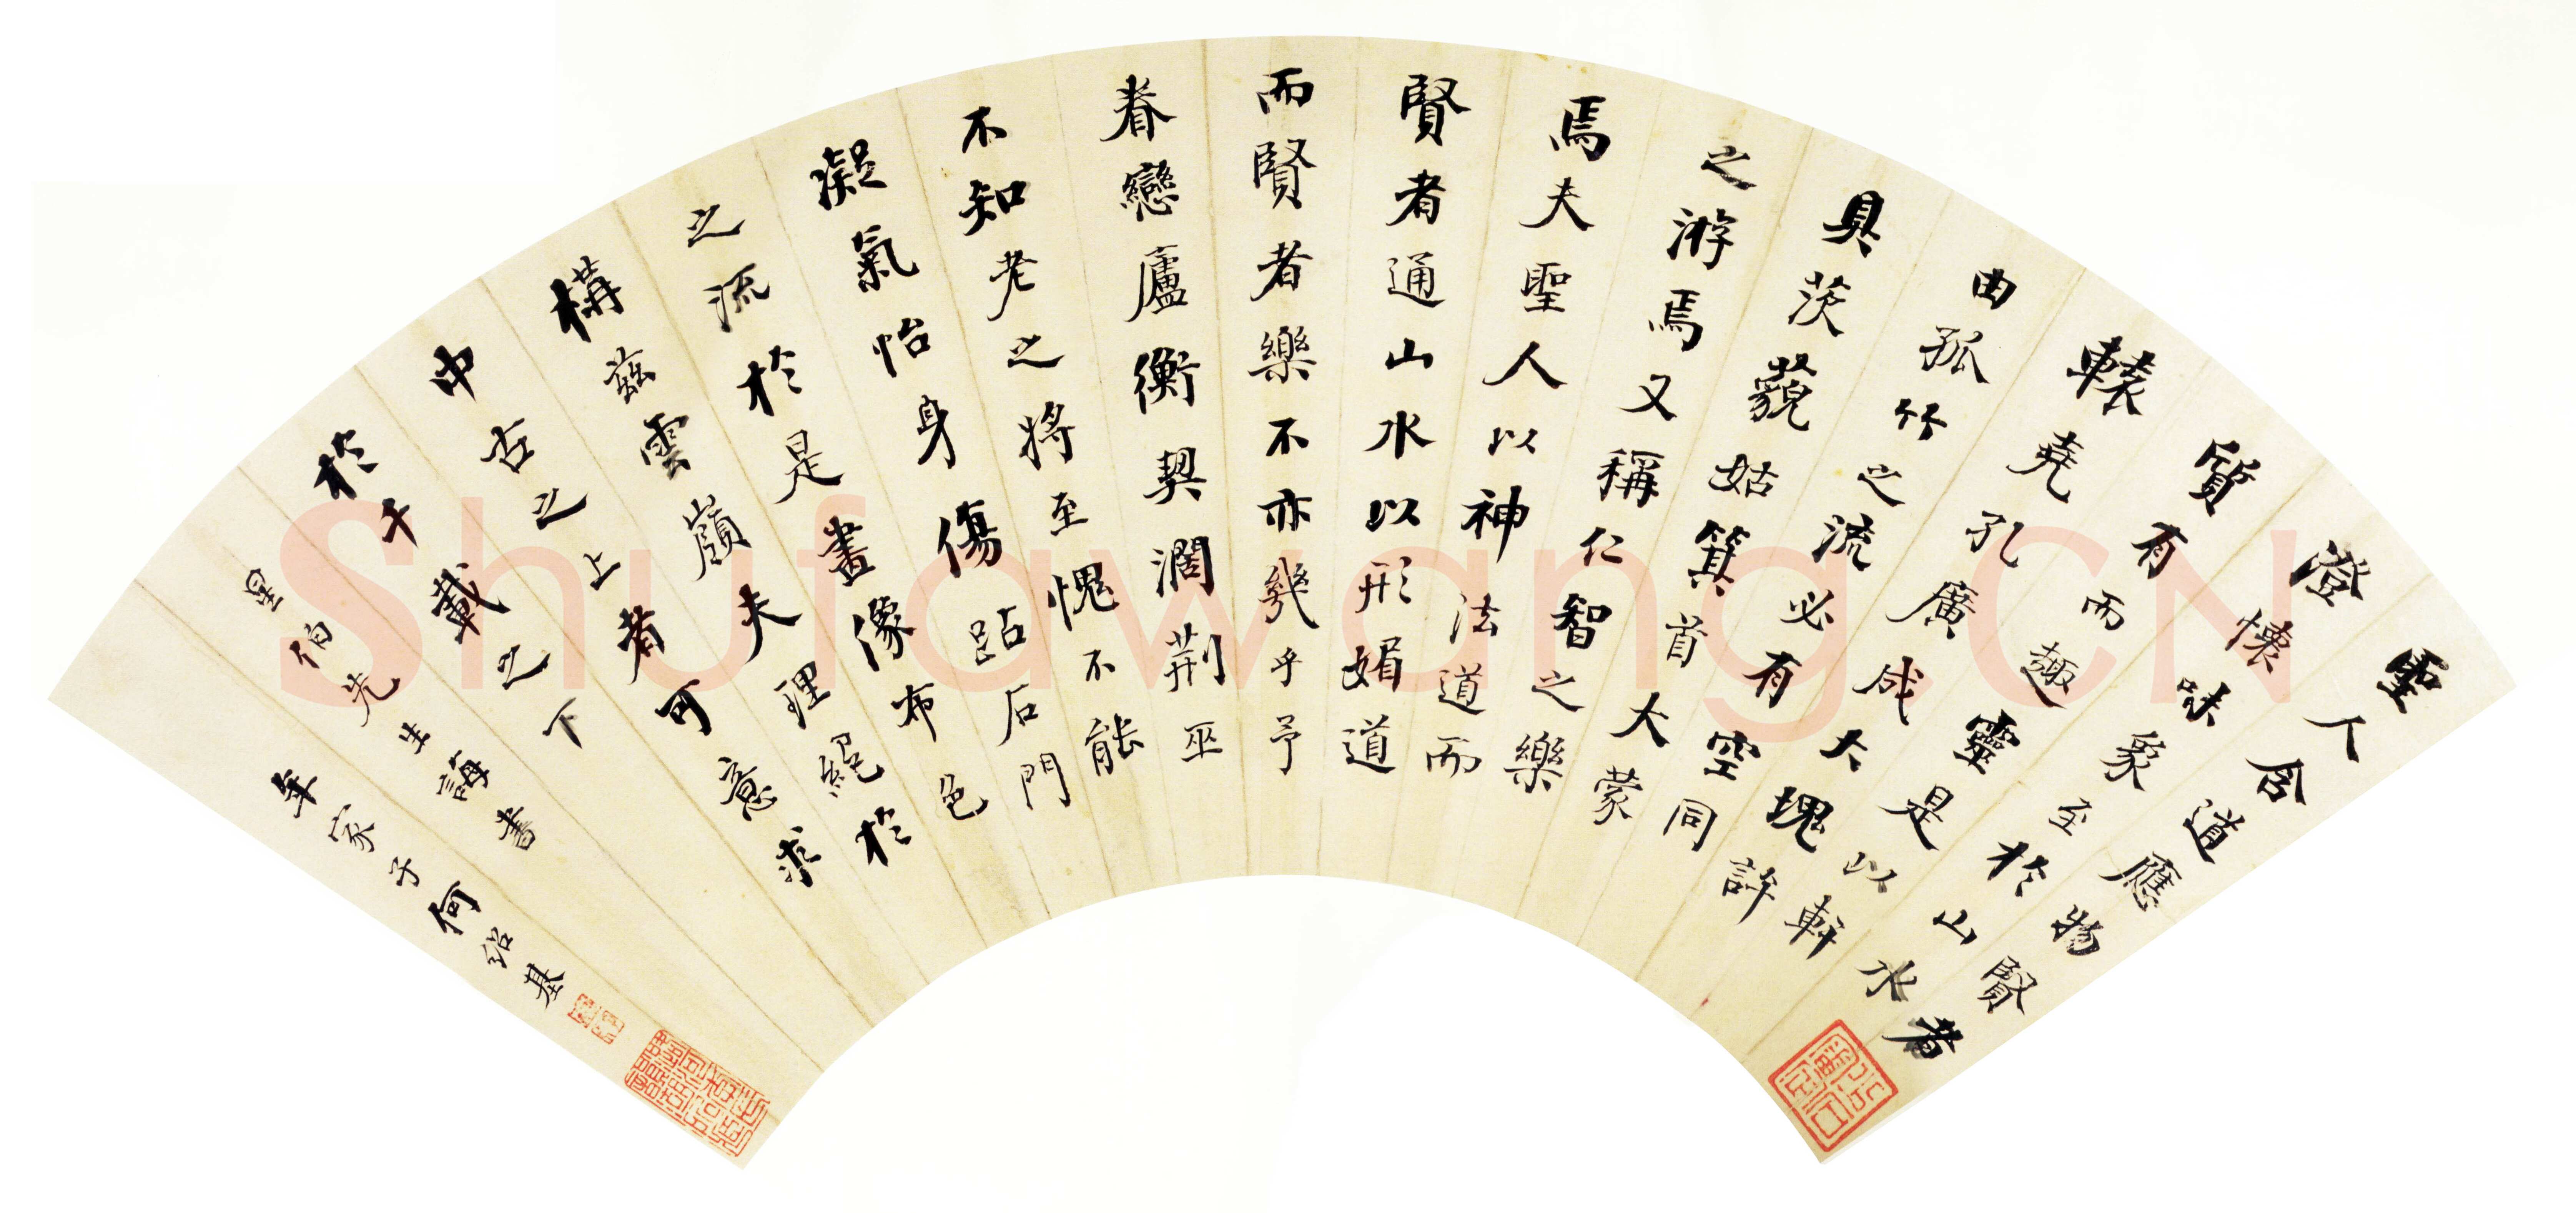 聖人含道應物賢者
澄懷味象至於山水
質有而趣靈是以軒
轅堯孔廣成大塊許
由孤竹之流必有空同
具茨藐姑箕首大蒙
之游焉又稱仁智之樂
焉夫聖人以神法道而
賢者通山水以形媚道
而賢者樂不亦幾乎予
眷戀廬衡契濶荆巫
不知老之將至愧不能
凝氣怡身傷跕石門
之流於是畫像布色
構茲雲嶺夫理絕於
中古之上者可意求
於千載之下
星伯先生誨書
年家子何紹基
Shufawang.CN